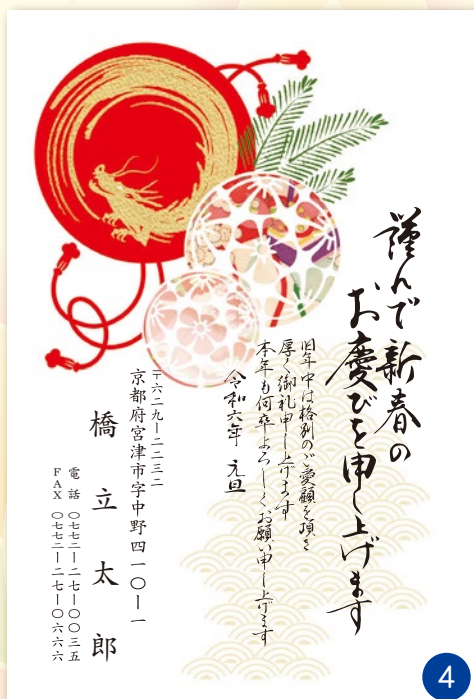 謹んで新春の
お慶びを申し上げます
旧年中は格別のご愛顧を頂き
厚く御礼申し上げます
本年も何卒よろしくお願い申し上げます
令和六年 元旦
〒六二九ー二二三二
京都府宮津市字中野四一〇ー一
橋立太郎
電話 〇七七二ー二七ー〇〇三五
FAX 〇七七二ー二七ー〇六六六
4